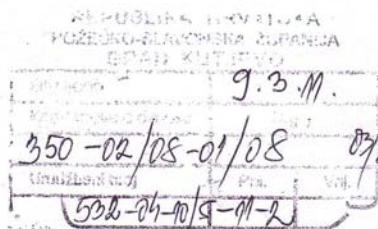 REPUBLIKA HRVATSKA
POŽEŠKO-SLAVONSKA ŽUPANIJA
GRAD KUTJEVO
9.3.11.
350-02/08-01/08 03/
Urudžbeni broj Pril. Vrij.
532-04-10/5-11-2